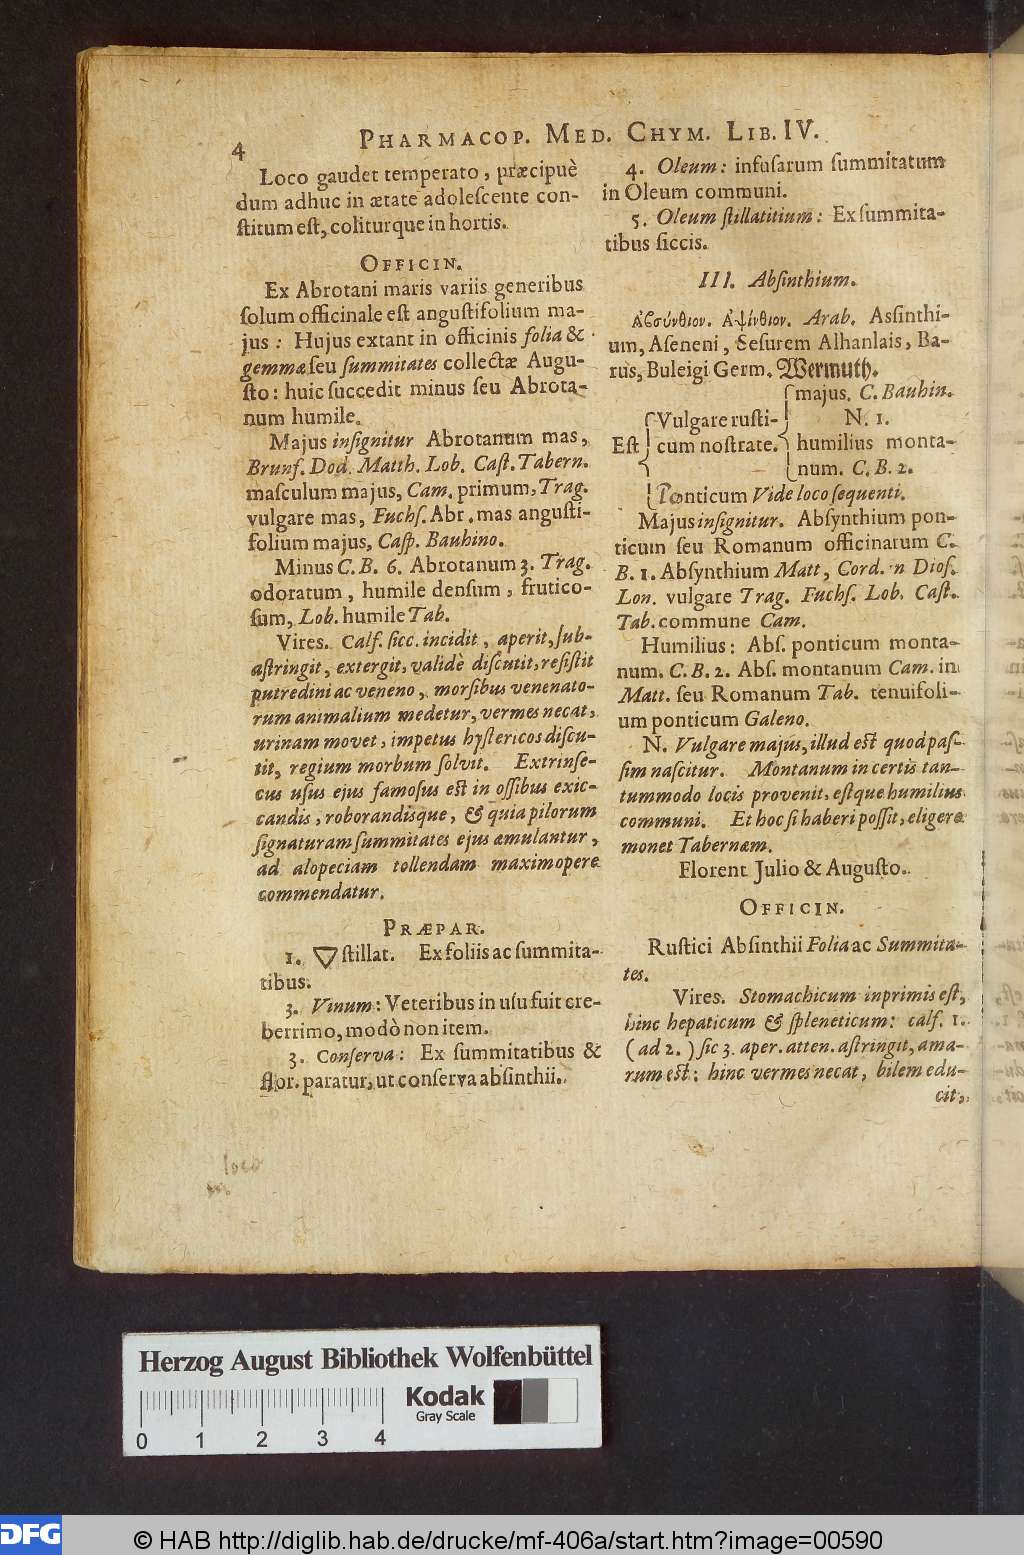 4
PHARMACOP. MED. CHYM. LIB. IV.
Loco gaudet temperato, præcipuè
dum adhuc in ætate adolescente con-
stitum est, coliturque in hortis.
OFFICIN.
Ex Abrotani maris variis generibus
solum officinale est angustifolium ma-
jus: Hujus extant in officinis folia &
gemmæ seu summitates collectæ Augu-
sto: huic succedit minus seu Abrota-
num humile.
Majus insignitur Abrotanum mas,
Brunf. Dod. Matth. Lob. Cast. Tabern.
masculum majus, Cam. primum, Trag.
vulgare mas, Fuchs. Abr. mas angusti-
folium majus, Casp. Bauhino.
Minus C. B. 6. Abrotanum 3. Trag.
odoratum, humile densum, frutico-
sum, Lob. humile Tab.
Vires. Calf. sicc. incidit, aperit, sub-
astringit, extergit, validè discutit, resistit
putredini ac veneno, morsibus venenato-
rum animalium medetur, vermes necat,
urinam movet, impetus hystericos discu-
tit, regium morbum solvit. Extrinse-
cus usus ejus famosus est in ossibus exic-
candis, roborandisque, & quia pilorum
signaturam summitates ejus æmulantur,
ad alopeciam tollendam maximopere
commendatur.
PRÆPAR.
1. 🜄 stillat. Ex foliis ac summita-
tibus.
3. Vinum: Veteribus in usu fuit cre-
berrimo, modò non item.
3. Conserva: Ex summitatibus &
flor. paratur, ut conserva absinthii.
4. Oleum: infusarum summitatum
in Oleum communi.
5. Oleum stillatitium: Ex summita-
tibus siccis.
III. Absinthium.
Ἀβσύνθιον. Ἀψίνθιον. Arab. Assinthi-
um, Aseneni, Sesurem Alhanlais, Ba-
rus, Buleigi Germ. Wermuth.
majus. C. Bauhin.
Vulgare rusti- N. 1.
Est cum nostrate. humilius monta-
num. C. B. 2.
Ponticum Vide loco sequenti.
Majus insignitur. Absynthium pon-
ticum seu Romanum officinarum C.
B. 1. Absynthium Matt, Cord. in Dios.
Lon. vulgare Trag. Fuchs. Lob. Cast.
Tab. commune Cam.
Humilius: Abs. ponticum monta-
num. C. B. 2. Abs. montanum Cam. in
Matt. seu Romanum Tab. tenuifoli-
um ponticum Galeno.
N. Vulgare majus, illud est quod pas-
sim nascitur. Montanum in certis tan-
tummodo locis provenit, estque humilius
communi. Et hoc si haberi possit, eligere
monet Tabernæm.
Florent Julio & Augusto.
OFFICIN.
Rustici Absinthii Folia ac Summita-
tes.
Vires. Stomachicum inprimis est,
hinc hepaticum & spleneticum: calf. 1.
(ad 2.) sic 3. aper. atten. astringit, ama-
rum est: hinc vermes necat, bilem edu-
cit,
loco
Herzog August Bibliothek Wolfenbüttel
Kodak
Gray Scale
0 1 2 3 4
DFG
© HAB http://diglib.hab.de/drucke/mf-406a/start.htm?image=00590